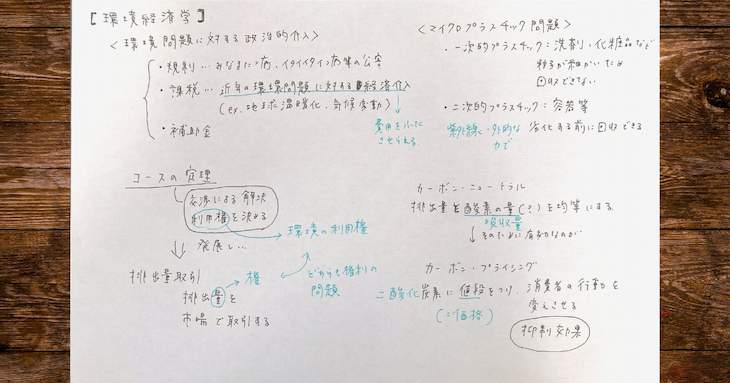 [環境経済学]
<環境問題に対する政治的介入>
・規制… みなまた病、イタイイタイ病等の公害
・課税… 近年の環境問題に対する経済介入
(ex.地球温暖化、気候変動)
費用を
させられる
・補助金
コースの定理
交渉による解決
利用権を決める
環境の利用権
発展し…
排出量取引
権
排出量を
市場で取引する
どちらも権利の
問題
<マイクロプラスチック問題>
・一次的プラスチック:洗剤、化粧品など
粒子が細かいため
回収できない
・二次的プラスチック:容器等
紫外線や外的な
力で
劣化する前に回収できる
カーボン・ニュートラル
排出量を酸素の量(?)を均等にする
吸収量
そのために有効なのが
カーボン・プライシング
二酸化炭素に値段をつけ、消費者の行動を
変えさせる
(=価格)
抑制効果